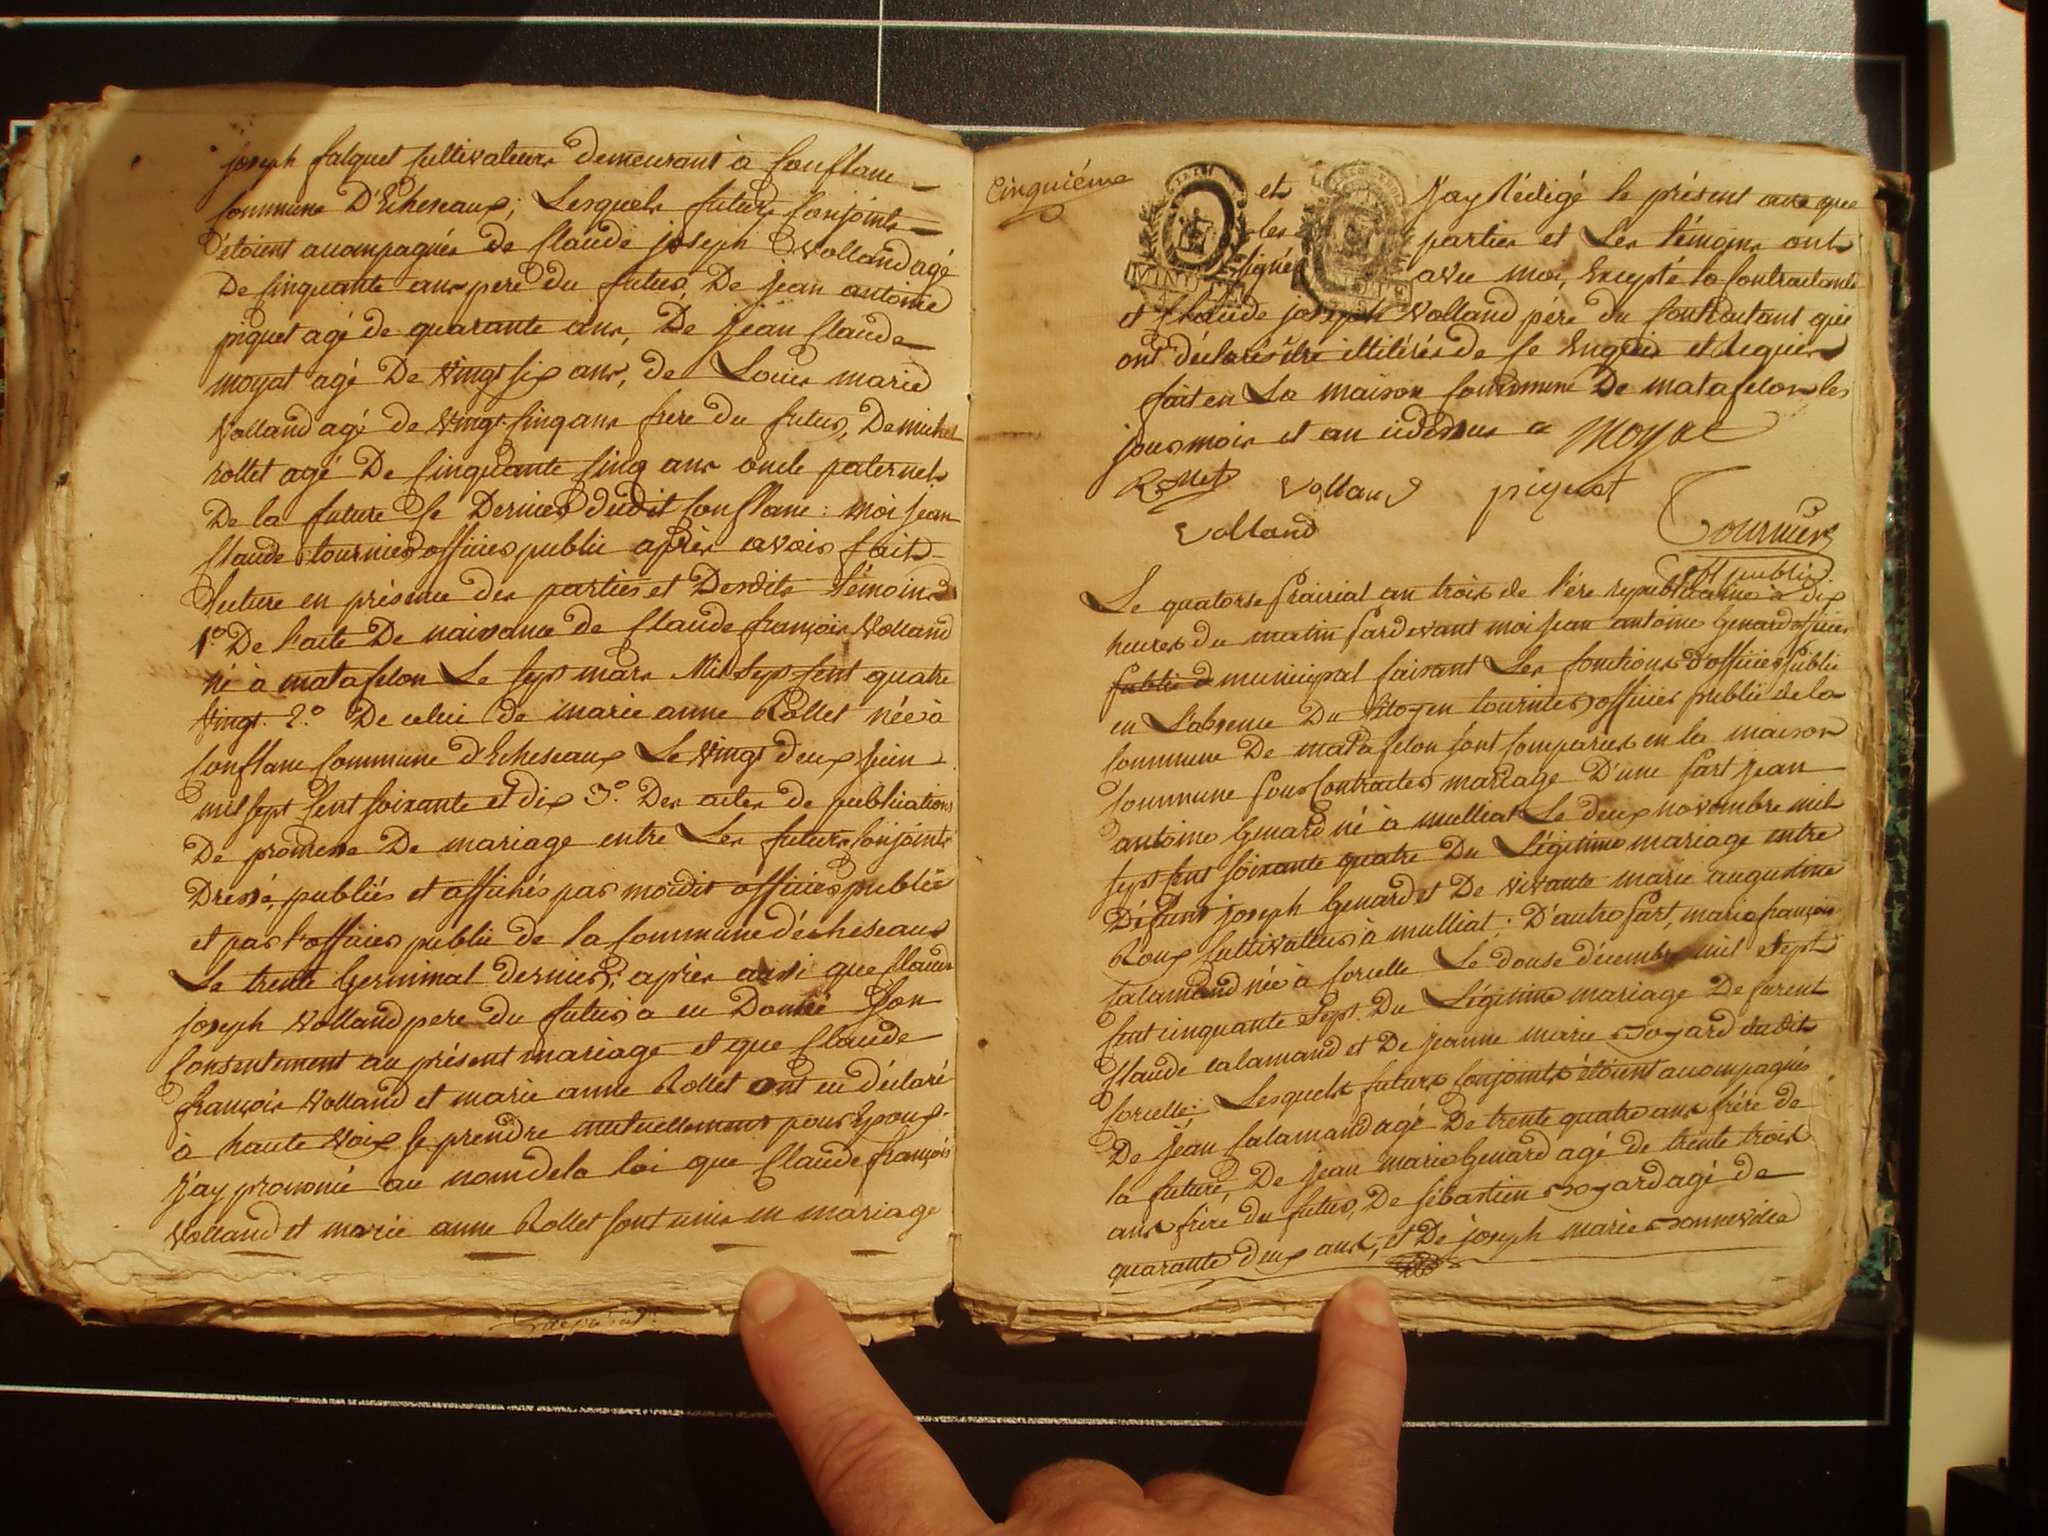 joseph falquet Cultivateurs demeurant à Conflanc
Commune D'Echeseaux; Lesquels futurs Conjoints
étoient accompagnés de Claude joseph Volland agé
De Cinquante ans pere du futur, De jean antoine
piquet agé de quarante ans, De jean Claude
moyat agé De Vingt six ans, de Louis marie
Volland agé de Vingt Cinq ans frere du futur, De michel
rollet agé De Cinquante Cinq ans oncle paternel
De la future Ce Dernier dudit Conflanc: moi jean
Claude tournier officier public après avoir fait
Lecture en présence des parties et Desdits témoins
1.º De l'acte De naissance de Claude françois Volland
né à matafelon Le sept mars Mil Sept Cent quatre
Vingt. 2.º De celui de marie anne Rollet née à
Conflanc Commune d'Echeseaux Le Vingt deux juin
mil sept Cent soixante et dix 3.º Des actes de publications
De promesse De mariage entre Les futurs Conjoints
Dressé, publiés et affichés par moidit officier public
et par l'officier public de la Commune d'écheseaux
Le trente Germinal dernier; après aussi que Claude
joseph Volland pere du futur a eu Donné Son
Consentement au présent mariage et que Claude
françois Volland et marie anne Rollet ont eu déclaré
à haute Voix se prendre mutuellement pour Epoux.
J'ay prononcé au nom de la loi que Claude françois
Volland et marie anne Rollet sont unis en mariage
Cinquiéme
et J'ay Rédigé le présent acte que
les parties et Les témoins ont
signé avec moi, Excepté la Contractante
et Claude joseph Volland pére du Contractant qui
ont déclaré être illitérés de ce Enquis et Requis
fait en La maison Commune De matafelon les
jour mois et an cidessus a Moyat
Rollet Volland piquet
Volland Tournier
off public.
Le quatorse prairial an trois de l'ére republicaine à dix
heures du matin Pardevant moi Jean antoine Genard officier
public municipal faisant Les fonctions d'officier Public
en L'absence Du Citoyen tournier officier public de la
Commune De matafelon sont Comparus en la maison
Commune pour Contracter mariage D'une part jean
antoine Genard né à mulliat Le deux novembre mil
sept Cent soixante quatre Du Légitime mariage entre
Défunt joseph Genard et De vivante marie augustine
Roux Cultivateur à mulliat: D'autre part, marie françoise
Calamand née à Corcelle Le douse décembre mil Sept
Cent cinquante Sept. Du Légitime mariage De Parent
Claude calamand et De jeanne marie Goyard dudit
Corcelle; Lesquels futurs Conjoints étoient accompagnés
De jean Calamand agé De trente quatre ans frére de
la future, De jean marie Genard agé de trente trois
ans frére du futur, De sébastien Goyard agé de
quarante deux ans, et De joseph marie Bonneville